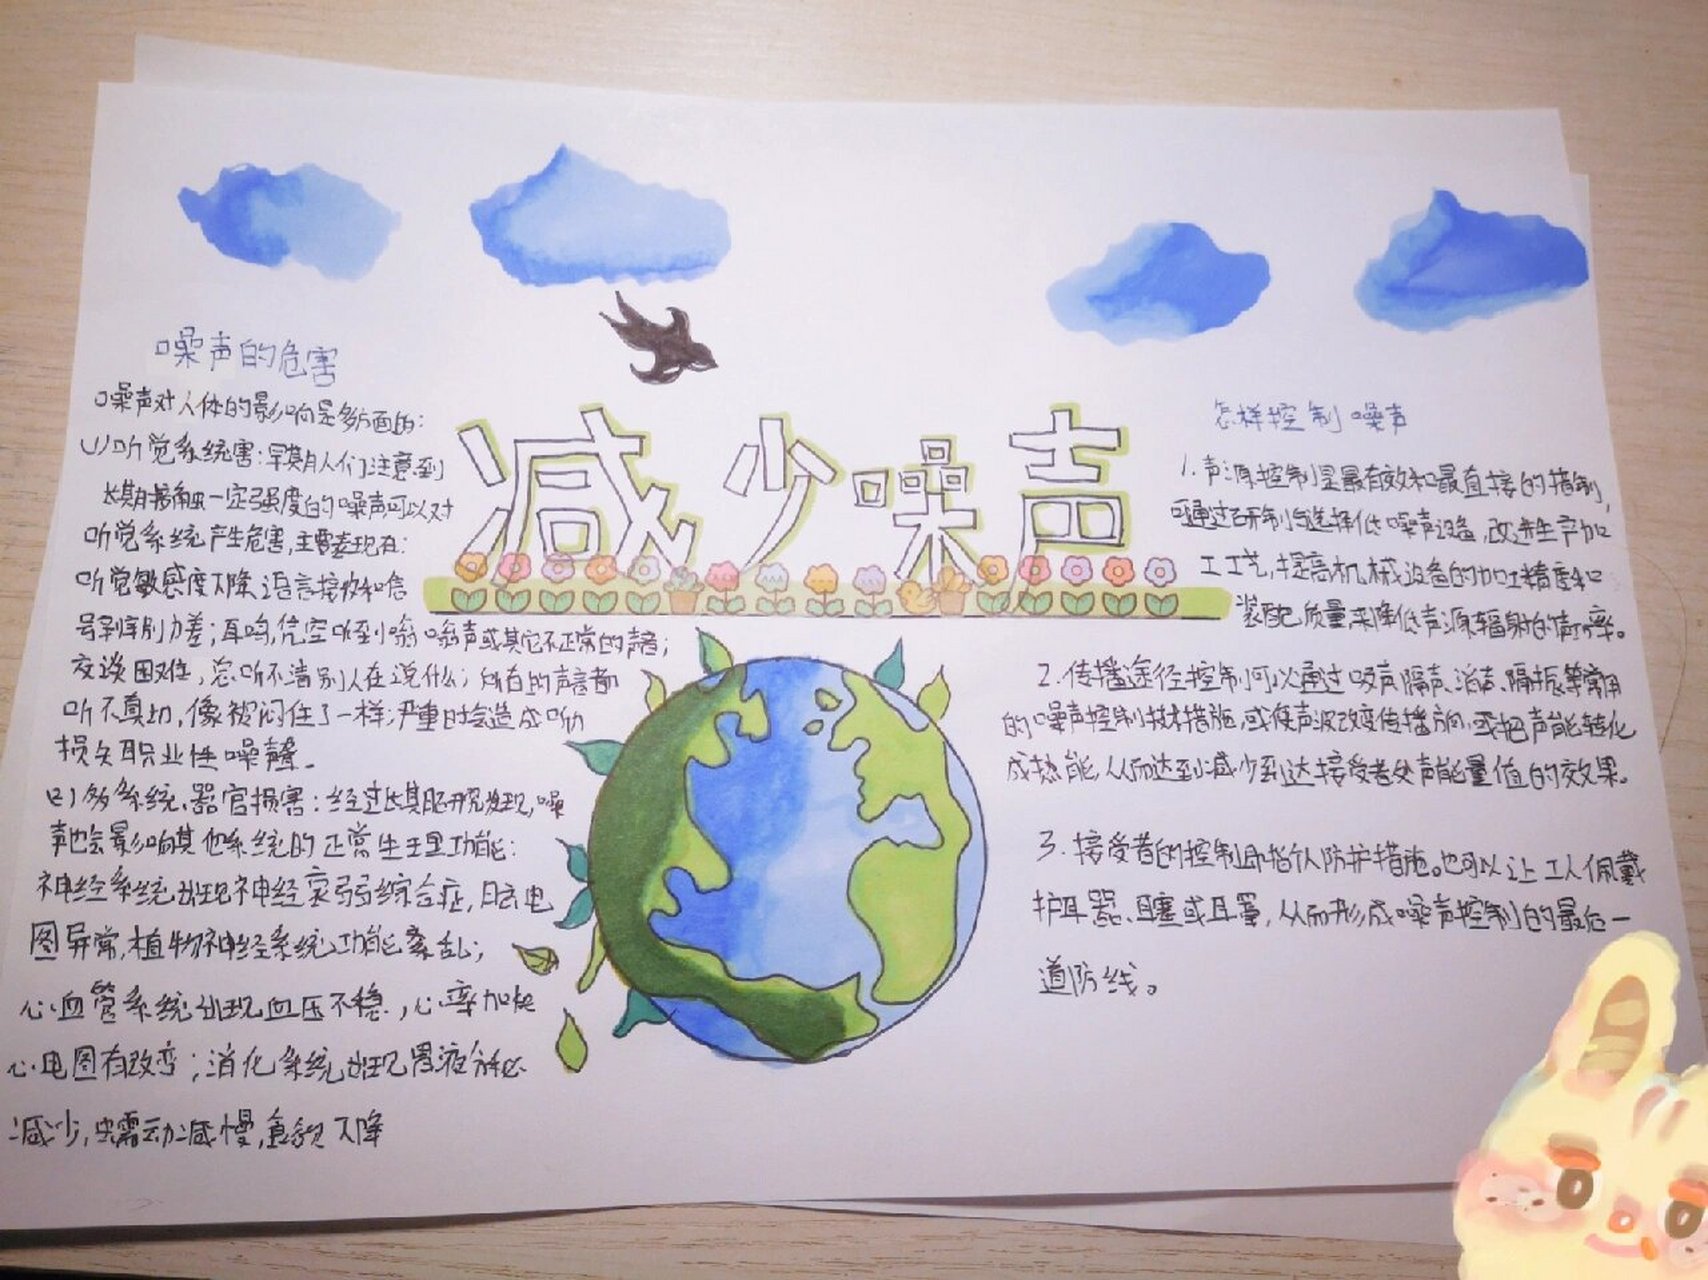 减少噪声
噪声的危害
噪声对人体的影响是多方面的:
(1)听觉系统害:早期人们注意到
长期接触一定强度的噪声可以对
听觉系统产生危害,主要表现在:
听觉敏感度下降;语言接收和信
号辨别力差;耳鸣,凭空听到嗡嗡声或其它不正常的声音;
交谈困难,总听不清别人在说什么;所有的声音都
听不真切,像被闷住了一样;严重时会造成听力
损失职业性噪聲.
(2)多系统、器官损害:经过长期研究发现,噪
声也会影响其他系统的正常生王里功能:
神经系统出现神经衰弱综合症,脑电
图异常,植物神经系统功能紊乱;
心血管系统出现血压不稳,心率加快
心电图有改变;消化系统出现胃液分泌
减少,蠕动减慢,食欲下降
怎样控制噪声
1.声源控制是最有效和最直接的措制,
可通过研制与选择低噪声设备,改进生产加
工工艺,提高机械设备的加工精度和
装配质量来降低声源辐射的声功率。
2.传播途径控制可以通过吸声、隔声、消声、隔振等常用
的噪声控制技术措施,或使声波改变传播方向,或把声能转化
成热能,从而达到减少到达接受者处声能量值的效果。
3.接受者的控制即指个人防护措施。也可以让工人佩戴
护耳器、耳塞或耳罩,从而形成噪声控制的最后一
道防线。